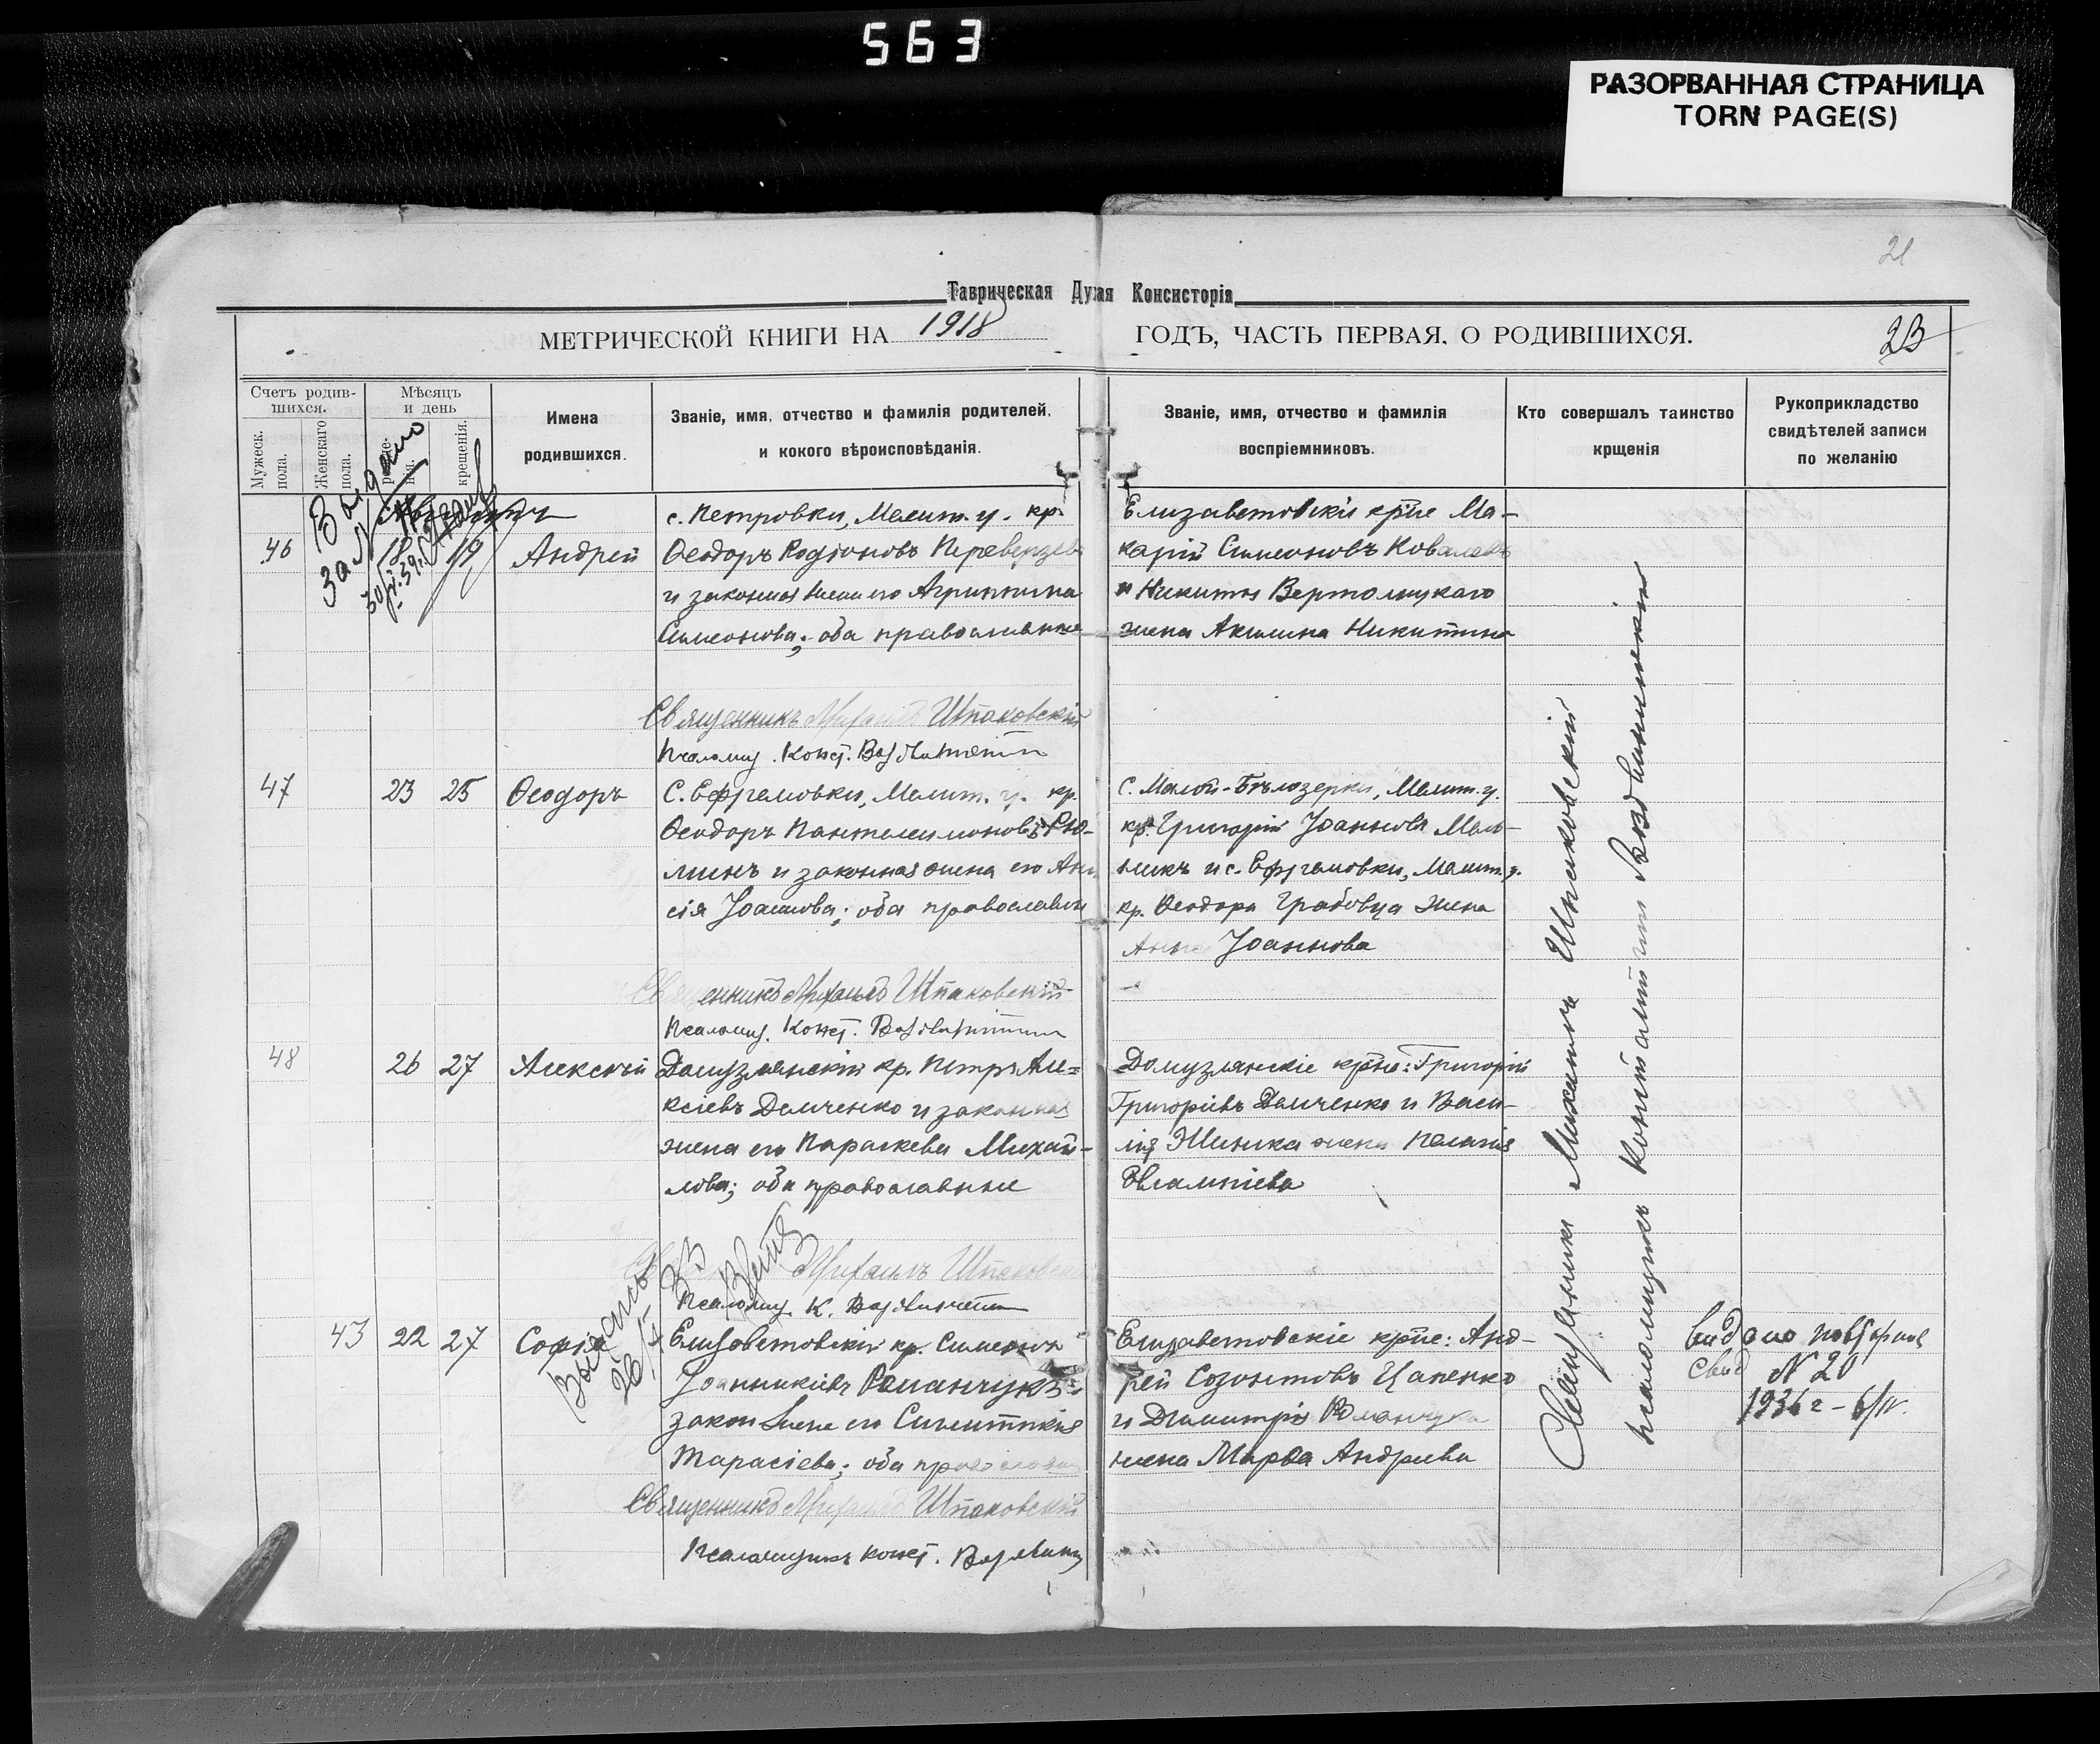 563
РАЗОРВАННАЯ СТРАНИЦА
TORN PAGE(S)
21
Таврическая Дуxая Консисторія
МЕТРИЧЕСКОЙ КНИГИ НА 1918 ГОДЪ, ЧАСТЬ ПЕРВАЯ, О РОДИВШИХСЯ.
23
Счетъ родив-
шихся.
Мужеск.
пола.
Женскаго
пола.
Мѣсяцъ
и день
крещенія.
Имена
родившихся.
Званіе, имя, отчество и фамилія родителей,
и кокого вѣроисповѣданія.
Званіе, имя, отчество и фамилія
воспріемниковъ.
Кто совершалъ таинство
крщенія
Рукоприкладство
свидѣтелей записи
по желанію
Выдано
46 18 19 Андрей
с. Петровки, Мелит. у. кр.
Ѳеодоръ Родіоновъ Переверзевъ
и законная жена его Агриппина
Симеонова; оба православные
Елизаветовскіе кр-не Ма-
карій Симеоновъ Ковалевъ
и Никиты Вертолицкаго
жена Акилина Никитина
Священникъ Михаилъ Шпаковскій
Псаломщ. Конст.
47 23 25 Ѳеодоръ
С. Ефремовки, Мелит. у. кр.
Ѳеодоръ Пантелеимоновъ Рю-
минъ и законная жена его
сія Іоаннова; оба православные
С. Малой-Бѣлозерки, Мелит. у.
кр. Григорій Іоанновъ Мель-
никъ и с. Ефремовки, Мелит. у.
кр. Ѳеодора Грабовца жена
Анна Іоаннова
Священникъ Михаилъ Шпаковскій
Псаломщ. Конст.
48 26 27 Алексѣй
Домузлянскій кр. Петръ Але=
ксіевъ Демченко и законная
жена его Параскева Михай-
лова; оба православные
Домузлянскіе кр-не: Григорій
Григоріевъ Демченко и Васи-
лія Жишка жена Пелагія
Евлампіева
Михаилъ Шпаковскій
Псаломщ. К.
43 22 27 Софія
Елизаветовскій кр. Симеонъ
Іоанникіевъ Романчукъ и
закон. жена его Синклитикія
Тарасіева; оба православные
Елизаветовскіе кр-не: Анд-
рей Созонтовъ Цапенко
и Димитрія Романчука
жена Марѳа Андреева
Священникъ Михаилъ Шпаковскій
Псаломщикъ Конст.
Священникъ Михаилъ Шпаковскій
псаломщикъ Константинъ
Видано повторне
свид N 20
1936 г - 6/IV.